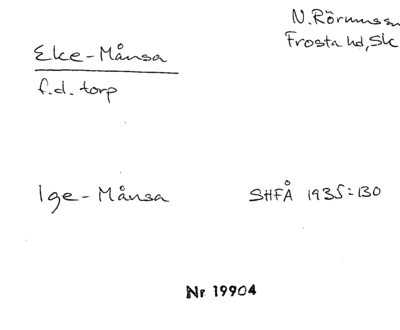 N. Rörumssn
Frosta hd, Sk
Eke-Månsa
f.d. torp
Ige-Månsa
SHFÅ 1935:130
Nr 19904